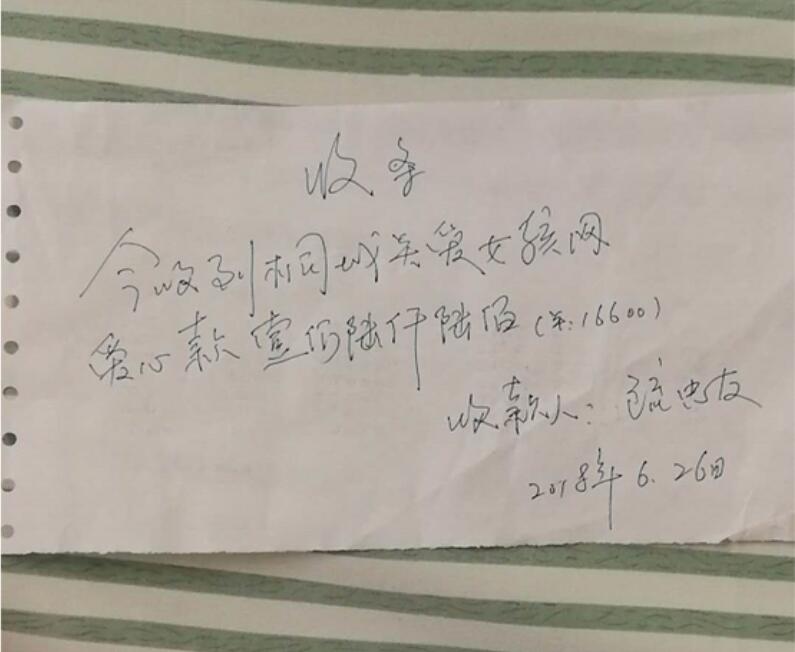 收条
今收到桐城关爱女孩网
爱心款壹万陆仟陆佰(¥:16600)
收款人:疏忠友
2018年6.26日